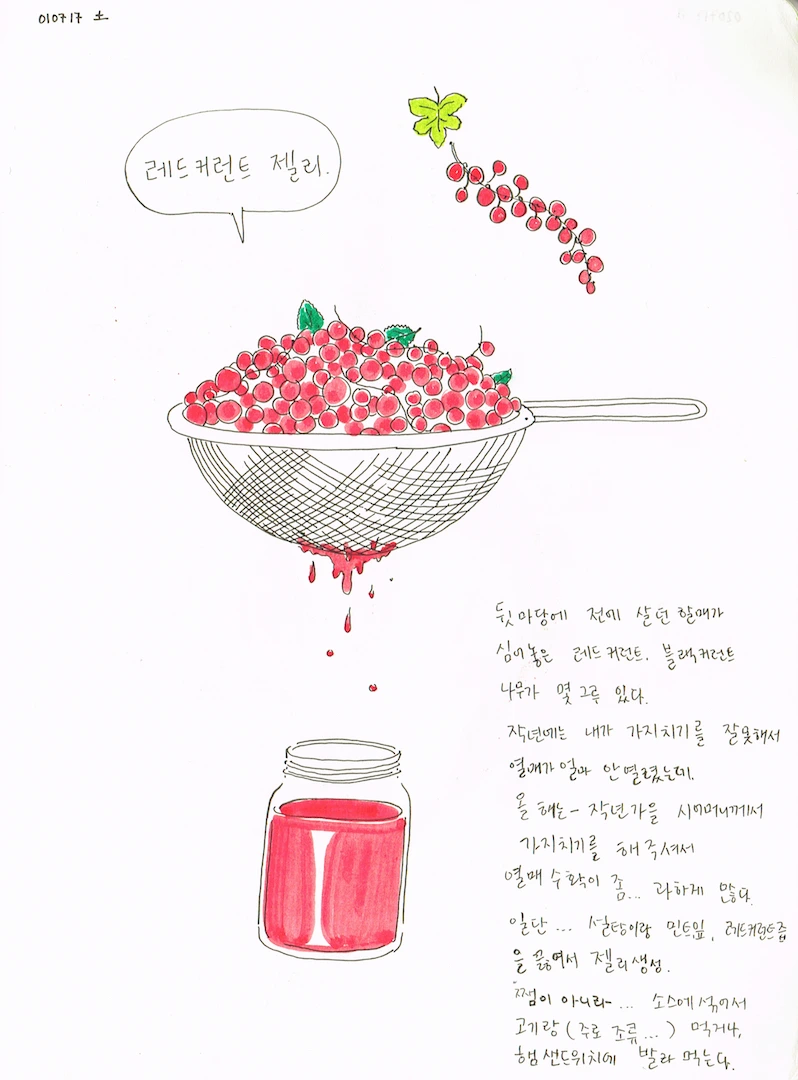 010717 토
레드커런트 젤리.
뒷마당에 전에 살던 할매가
심어놓은 레드커런트. 블랙커런트
나무가 몇 그루 있다.
작년에는 내가 가지치기를 잘못해서
열매가 얼마 안열렸는데.
올해는- 작년가을 시어머니께서
가지치기를 해주셔서
열매 수확이 좀... 과하게 많다.
일단... 설탕이랑 민트잎, 레드커런트즙
을 끓여서 젤리생성.
쨈이 아니라-... 소스에 섞어서
고기랑 (주로 조류...) 먹거나,
햄샌드위치에 발라 먹는다.